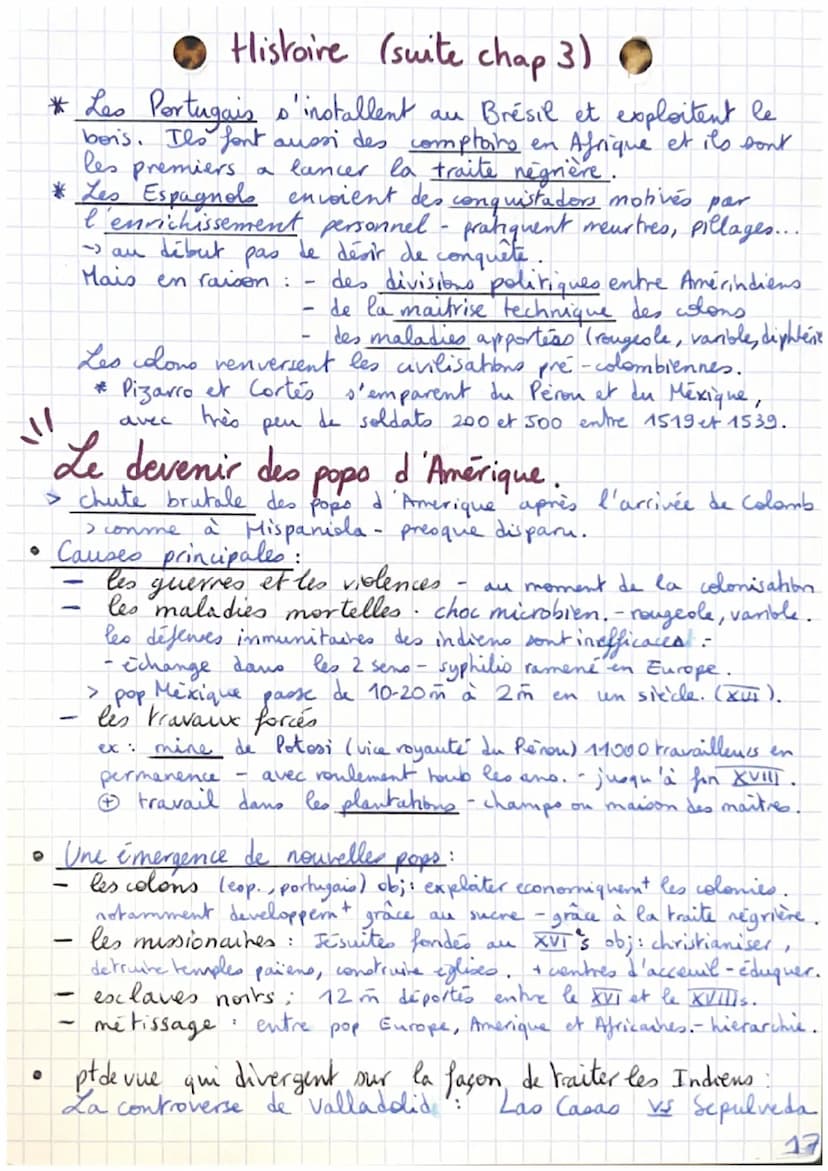 Histoire (suite chap 3)
* Les Portugais s'installent au Brésil et exploitent le
bois. Ils font aussi des comptoirs en Afrique et ils sont
les premiers a lancer la traite négrière.
* Les Espagnols envoient des conquistadors motivés par
l'enrichissement personnel - pratiquent meurtres, pillages...
→ au début pas de désir de conquête.
Mais en raison : - des divisions politiques entre Amérindiens
- de la maitrise technique des colons
- des maladies apportées (rougeole, variole, diphtérie
Les colons renversent les civilisations pré-colombiennes.
* Pizarro et Cortés s'emparent du Pérou et du Méxique,
avec très peu de soldats 200 et 500 entre 1519 et 1539.
Le devenir des pops d'Amérique.
> chute brutale des pops d'Amerique après l'arrivée de Colomb
> comme à Hispaniola - presque disparu.
• Causes principales :
- les guerres et les violences - au moment de la colonisation
- les maladies mortelles . choc microbien. - rougeole, variole.
les défenses immunitaires des indiens sont inefficaces :-
- échange dans les 2 sens - syphilis ramené en Europe.
> pop Méxique passe de 10-20 m̄ à 2 m̄ en un siècle. (XVI).
- les travaux forcés
ex : mine de Potosi (vice royauté du Pérou) 11000 travailleurs en
permanence - avec roulement touts les ans. - jusqu'à fin XVIII.
⊕ travail dans les plantations - champs ou maison des maîtres.
• Une émergence de nouvelles pops :
- les colons (esp., portugais) obj : exploiter economiquemt les colonies.
notamment developpemt grâce au sucre - grâce à la traite négrière.
- les missionaires : Jésuites fondés au XVI s obj : christianiser,
detruire temples païens, construire églises. + centres d'acceuil - éduquer.
- esclaves noirs : 12 m̄ déportés entre le XVI et le XVIII s.
- métissage : entre pop Europe, Amerique et Africaines. - hierarchie.
• pt de vue qui divergent sur la façon de traiter les Indiens :
La controverse de Valladolid : Las Casas vs Sepulveda
17